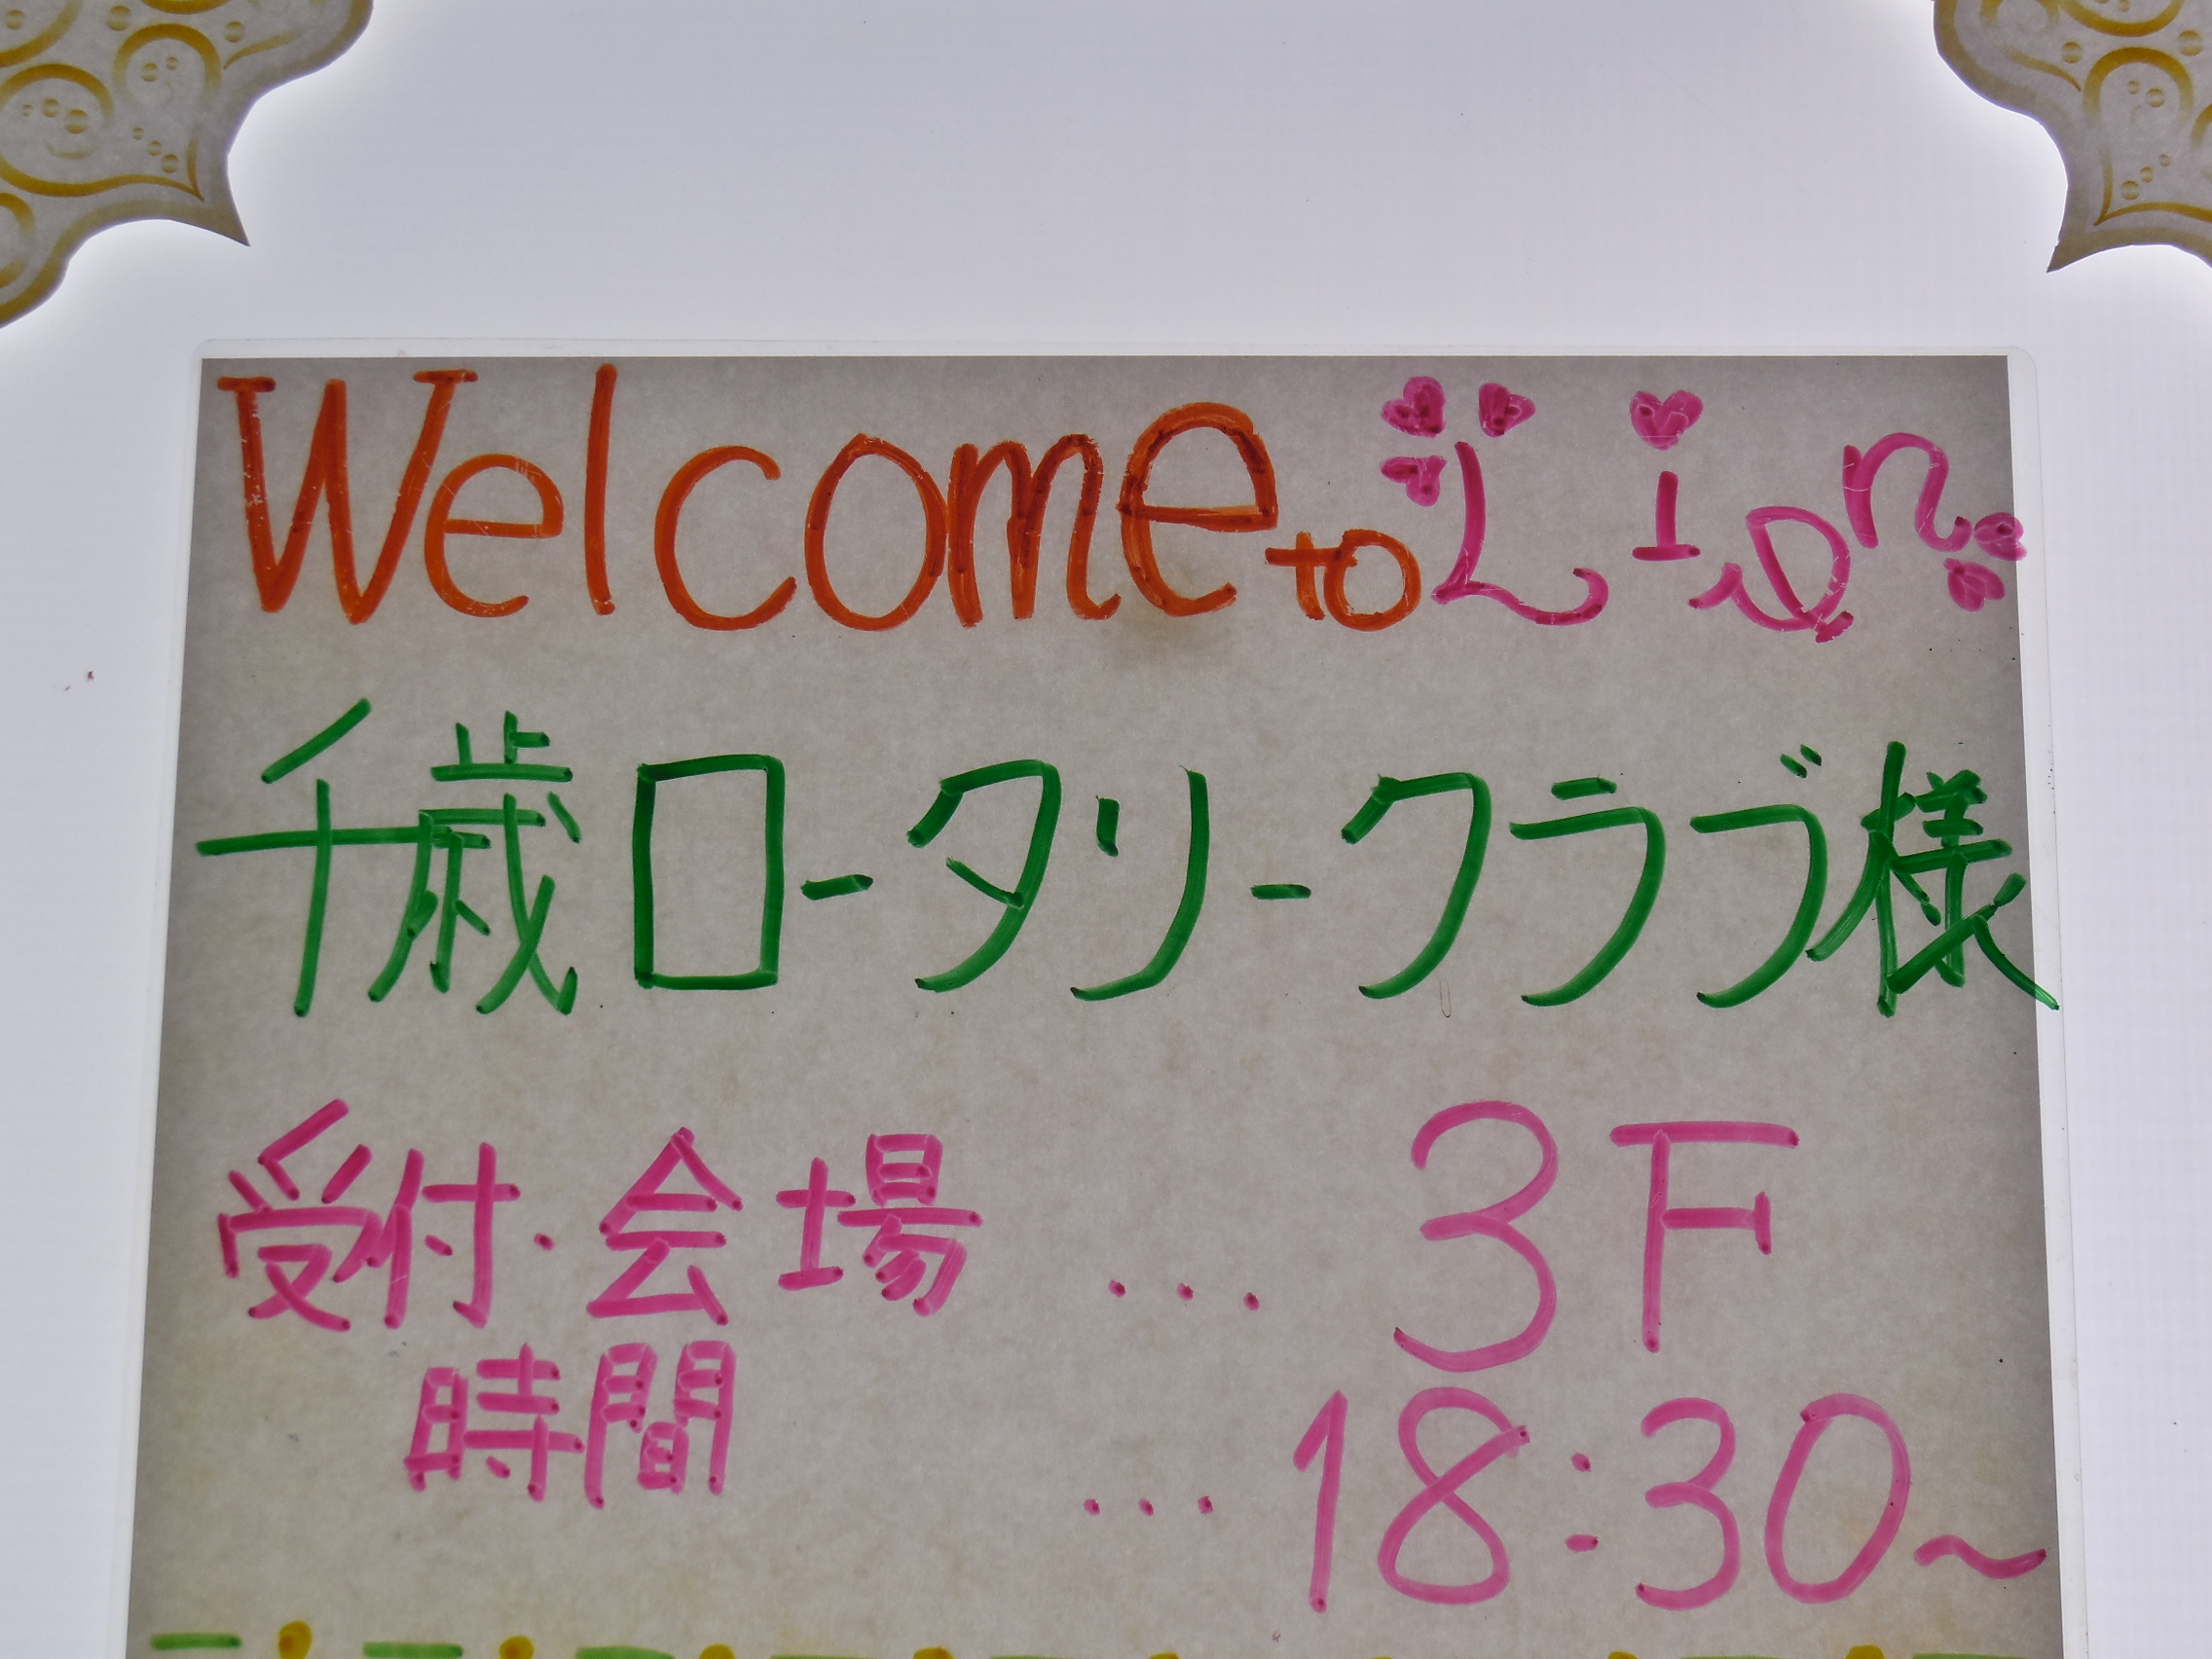 Welcome to Lion
千歳ロータリークラブ様
受付・会場 … 3F
時間 … 18:30～